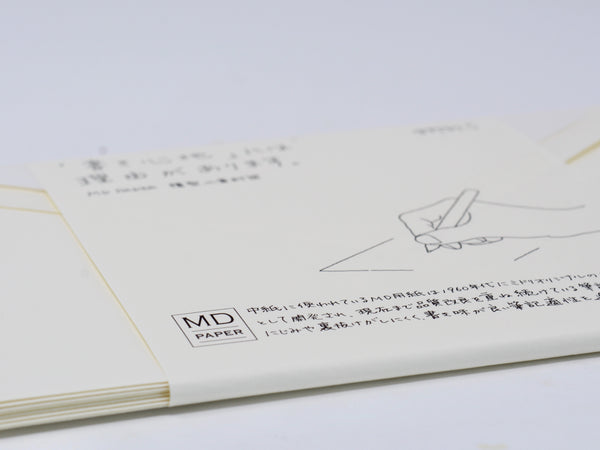 書き心地には
理由があります。
MD PAPER
MD
PAPER
中紙に使われているMD用紙は1960年代にミドリオリジナル
として開発され、現在まで品質改良を重ね続けている筆
にじみや裏抜けがしにくく、書き味が良い筆記適性を